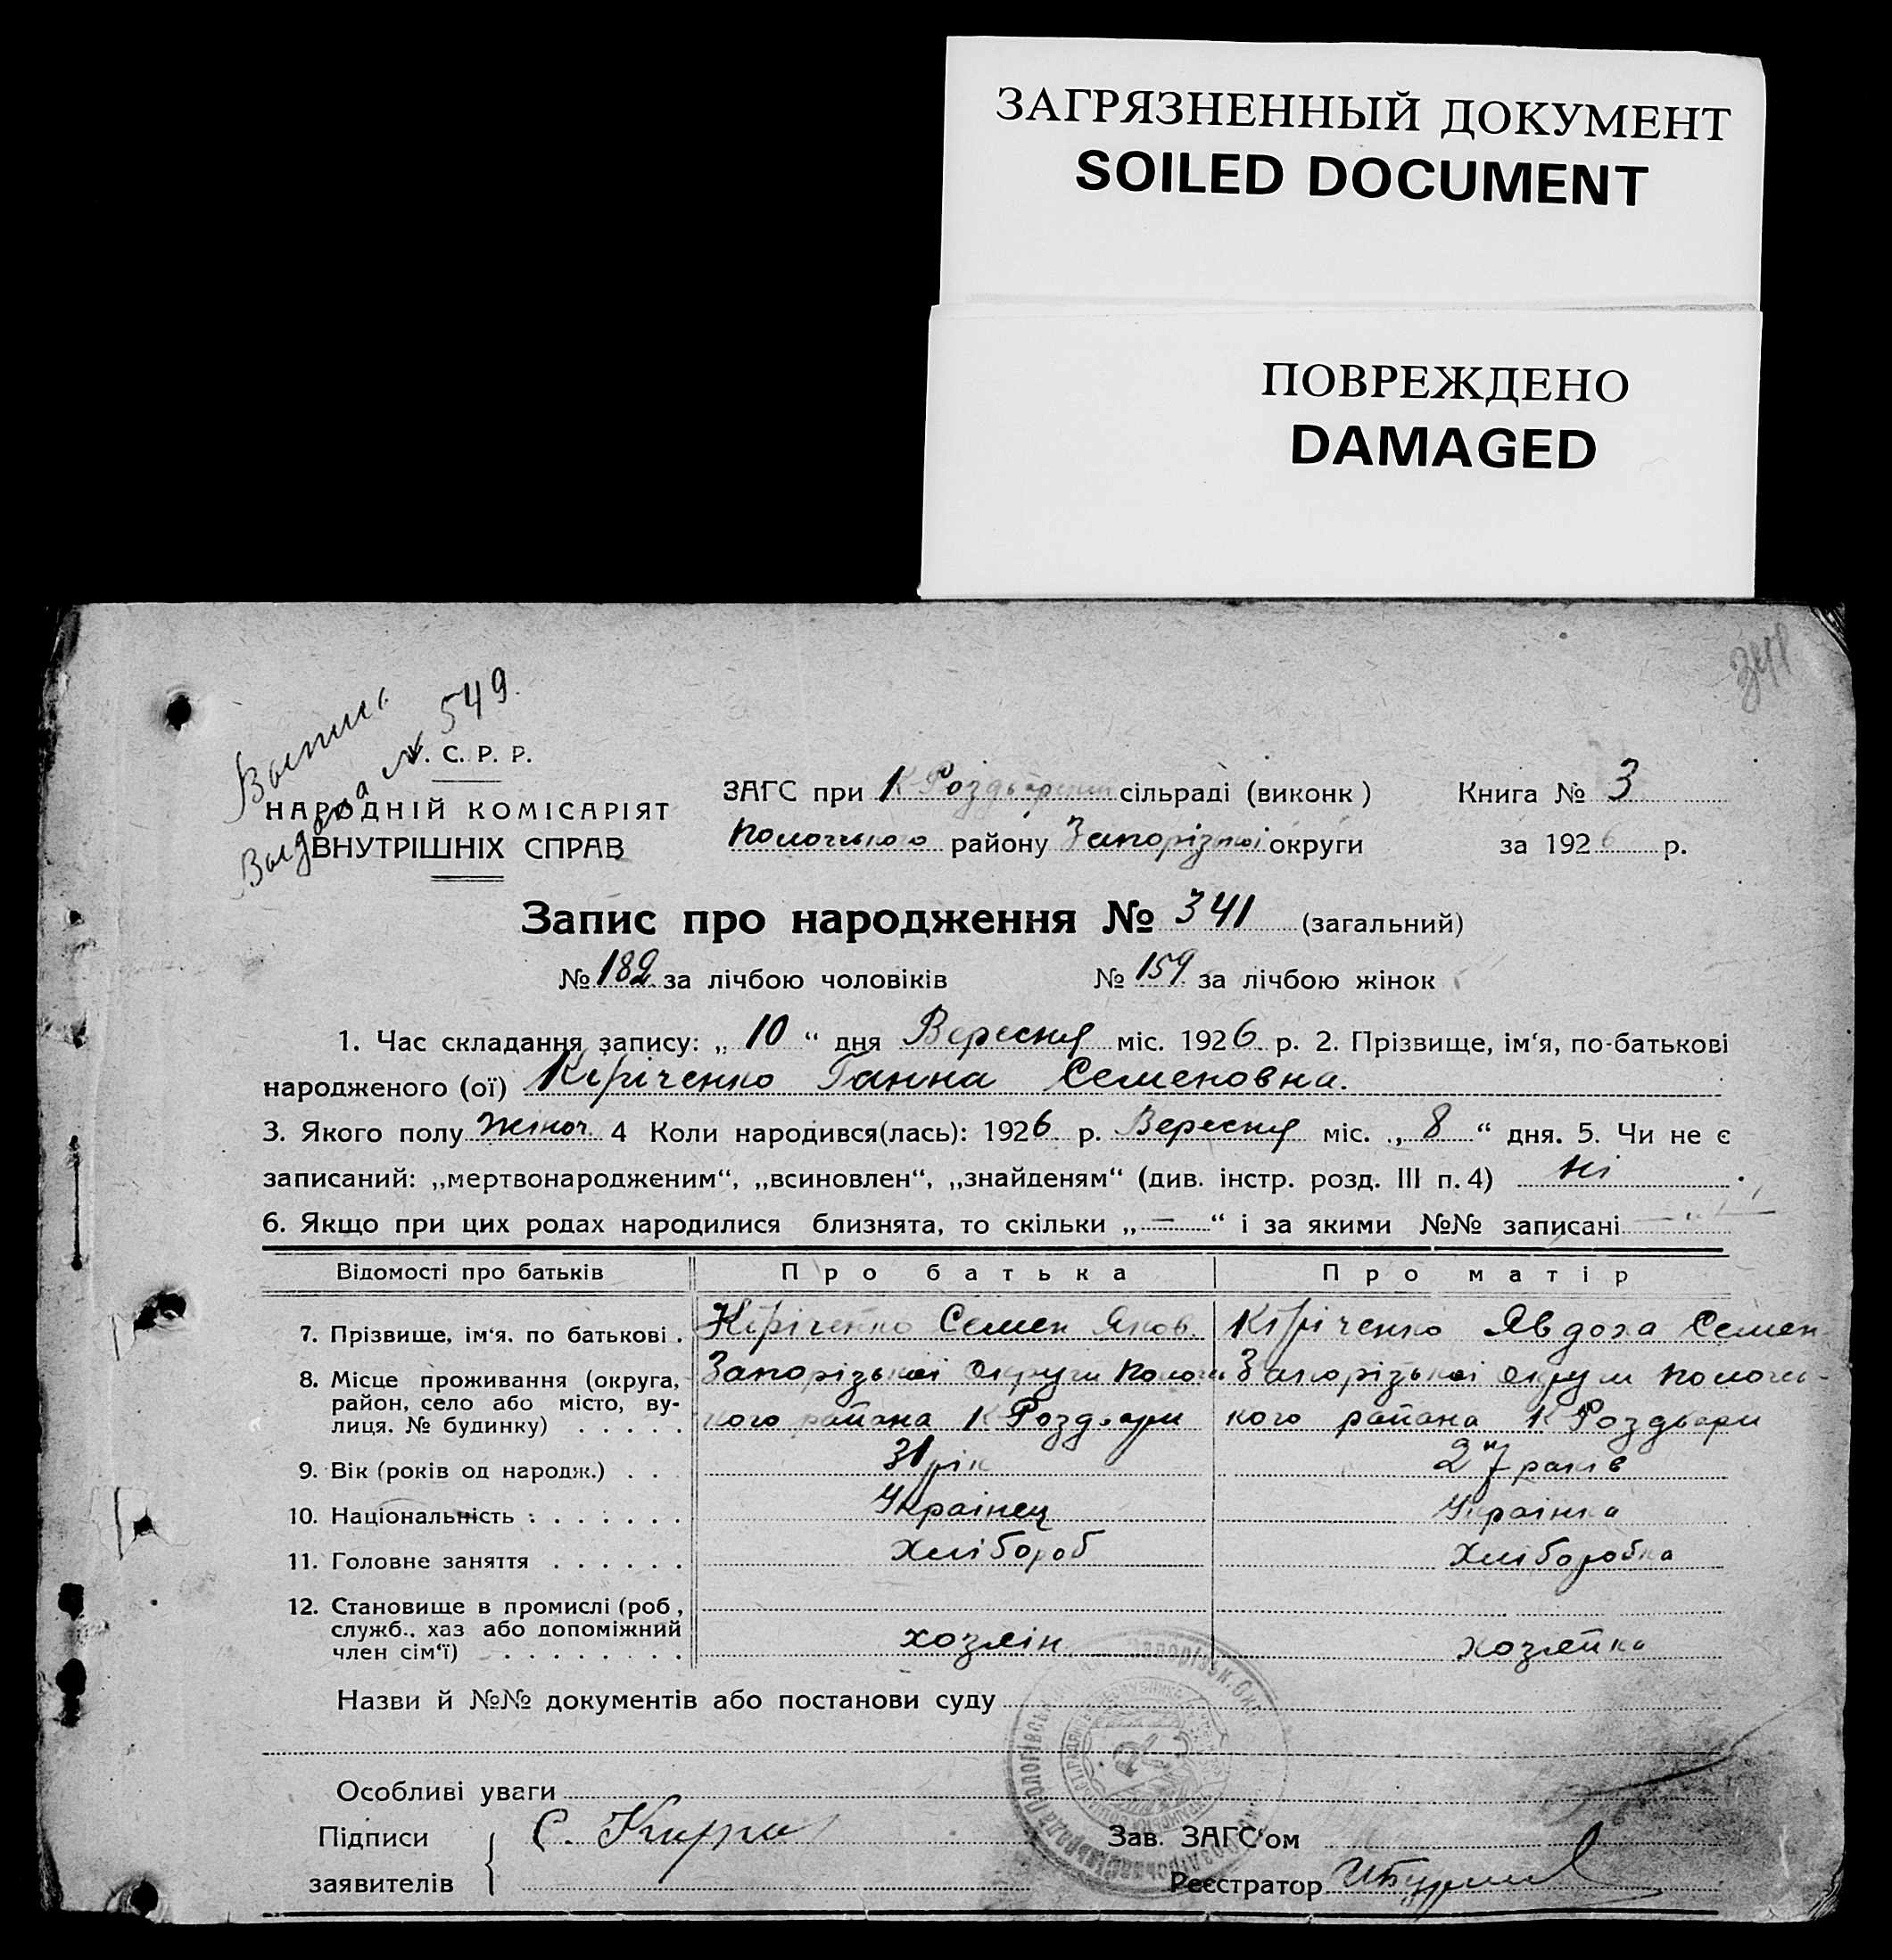 ЗАГРЯЗНЕННЫЙ ДОКУМЕНТ
SOILED DOCUMENT
ПОВРЕЖДЕНО
DAMAGED
341
Выпись
Выдана № 549.
У. С. Р. Р.
НАРОДНІЙ КОМІСАРІЯТ
ВНУТРІШНІХ СПРАВ
ЗАГС при К Роздорській сільраді (виконк) Книга № 3
Пологського району Запорізької округи за 1926 р.
Запис про народження № 341 (загальний)
№ 182 за лічбою чоловіків № 159 за лічбою жінок
1. Час складання запису: „ 10 “ дня Вересня міс. 1926 р. 2. Прізвище, ім‘я, по-батькові
народженого (ої) Кіріченко Ганна Семеновна.
3. Якого полу Жіноч. 4 Коли народився(лась): 1926 р. Вересня міс. „ 8 “ дня. 5. Чи не є
записаний: „мертвонародженим“, „всиновлен“, „знайденям“ (див. інстр. розд. III п. 4) ні
6. Якщо при цих родах народилися близнята, то скільки „ — “ і за якими №№ записані — “ —
Відомості про батьків Про батька Про матір
7. Прізвище, ім‘я. по батькові . Кіріченко Семен Яков. Кіріченко Явдоха Семен
8. Місце проживання (округа, Запорізькоі округи Пологсь Запорізькоі округи Пологсь-
район, село або місто, ву- кого района К Роздори кого района К Роздори
лиця. № будинку) . . . . .
9. Вік (років од народж.) . . . 31 рік 27 років
10. Національність : . . . . . . Украінец Украінка
11. Головне заняття . . . . . . Хлібороб Хлiборобка
12. Становище в промислі (роб,
служб., хаз або допоміжний хозяін хозяйка
член сім‘ї) . . . . . . . .
Назви й №№ документів або постанови суду
Особливі уваги
Підписи С. Кири Зав. ЗАГС‘ом
заявителів Реєстратор